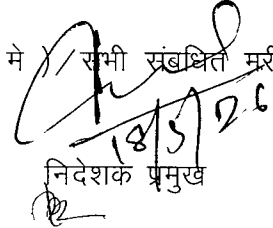 मे ) सभी संबधित
18/5/26
निदेशक प्रमुख